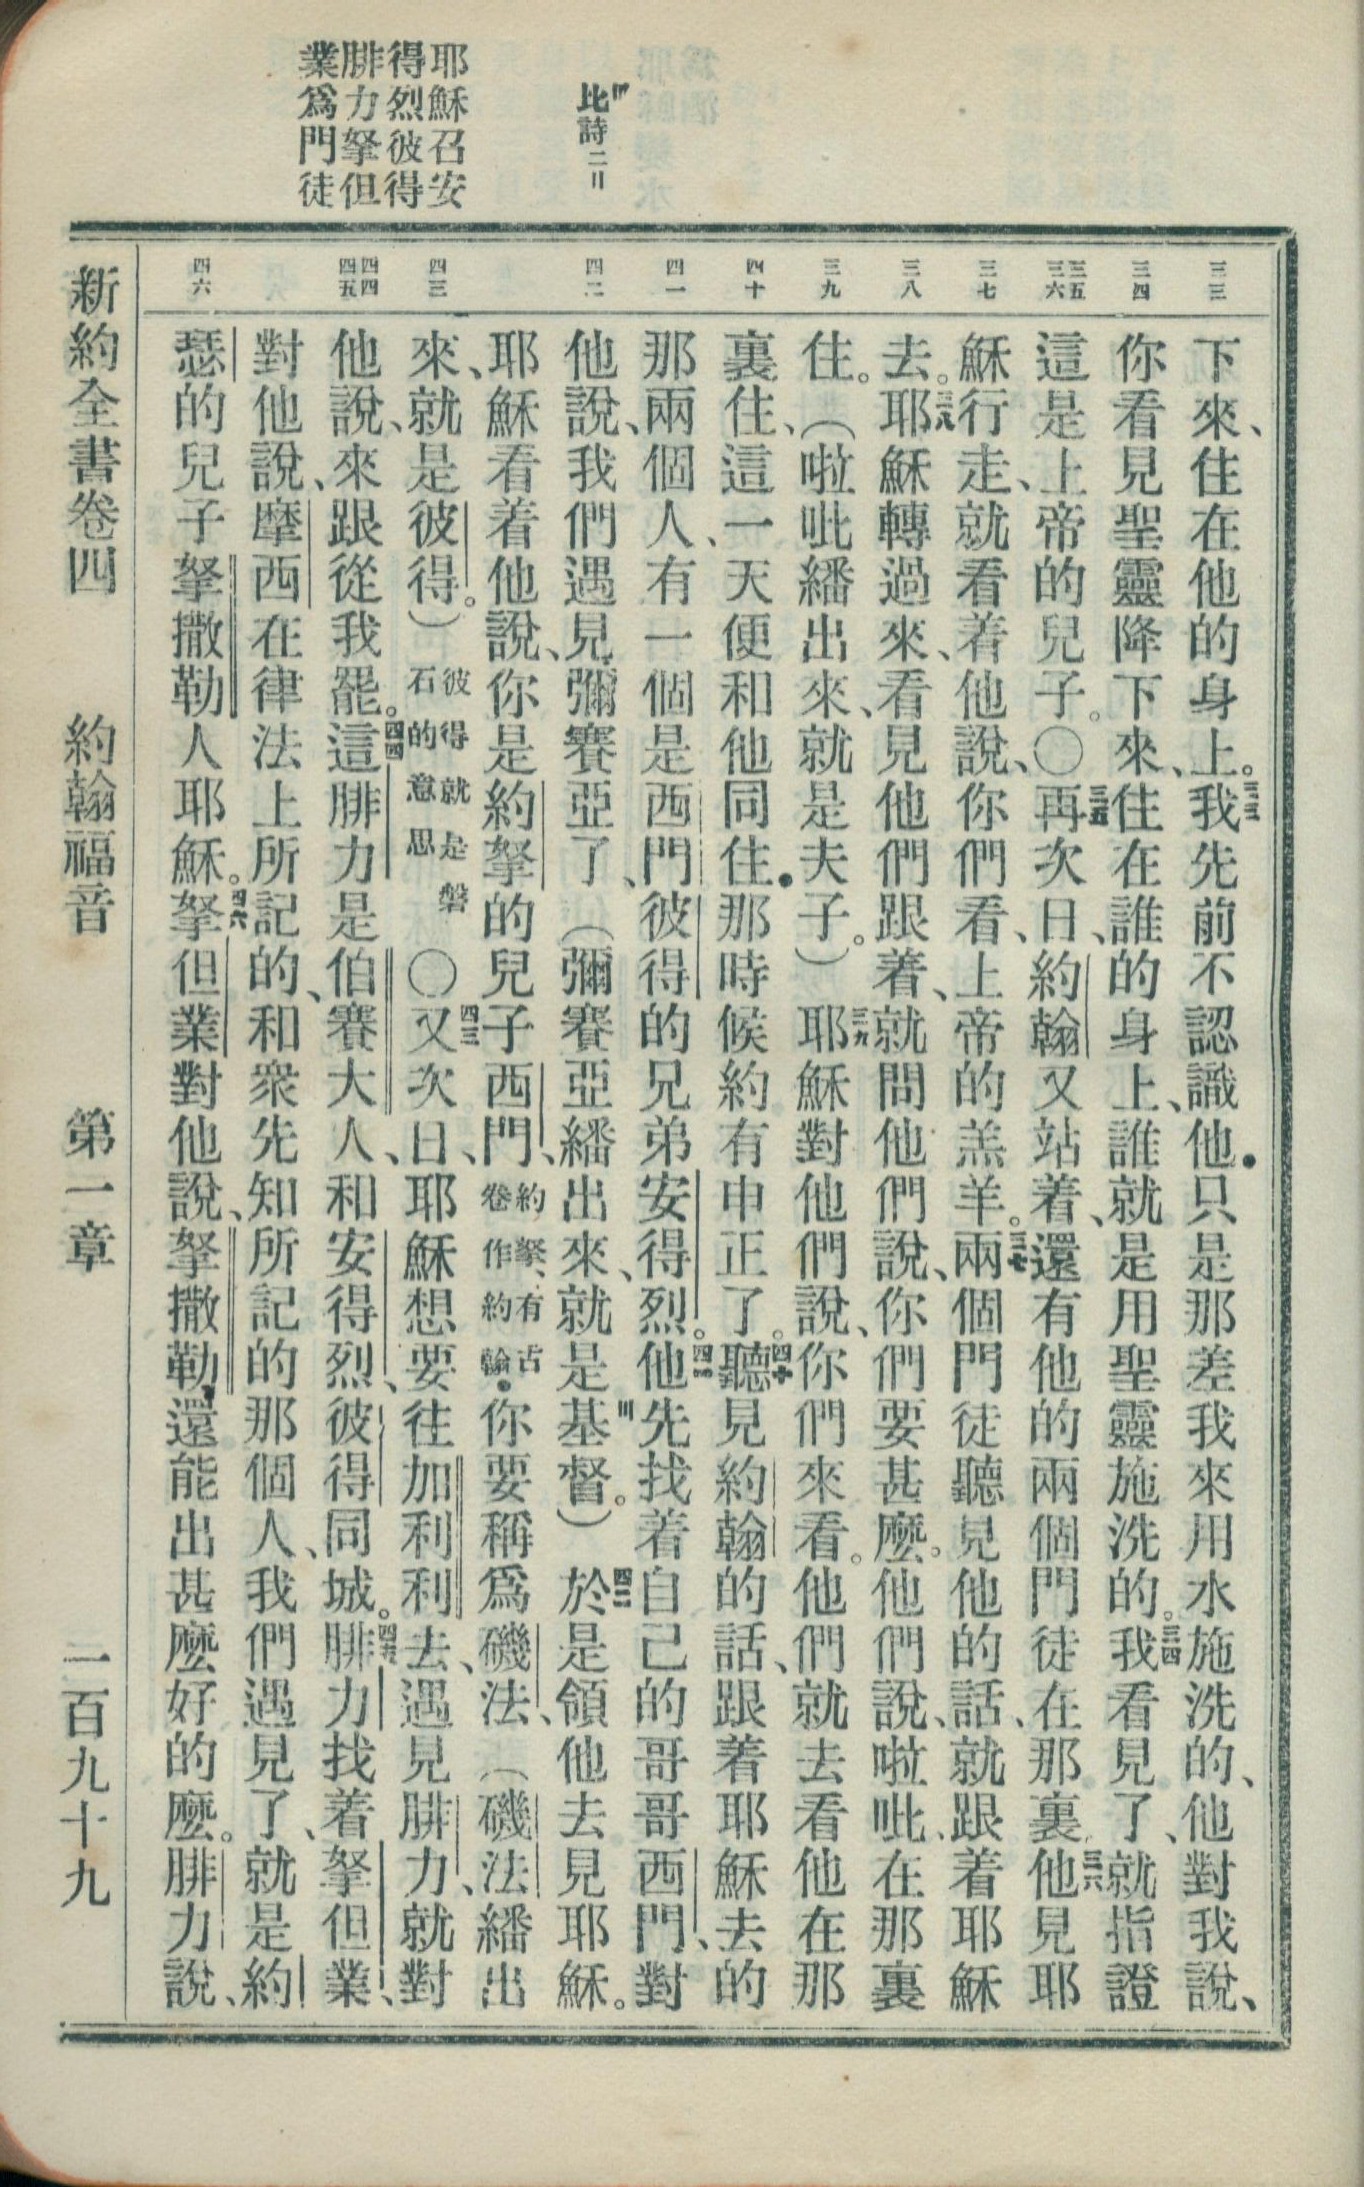 比詩二〢
耶穌召安
得烈彼得
腓力拏但
業爲門徒
三三
三四
三五
三六
三七
三八
三九
四十
四一
四二
四三
四四
四五
四六
下來、住在他的身上。三三我先前不認識他•只是那差我來用水施洗的、他對我說、
你看見聖靈降下來、住在誰的身上、誰就是用聖靈施洗的。三四我看見了、就指證
這是上帝的兒子。〇三五再次日、約翰又站着、還有他的兩個門徒在那裏、三六他見耶
穌行走、就看着他說、你們看、上帝的羔羊。三七兩個門徒聽見他的話、就跟着耶穌
去。三八耶穌轉過來、看見他們跟着、就問他們說、你們要甚麼。他們說、啦吡、在那裏
住。(啦吡繙出來、就是夫子。)三九耶穌對他們說、你們來看。他們就去看他在那
裏住、這一天便和他同住•那時候約有申正了。四十聽見約翰的話、跟着耶穌去的
那兩個人、有一個是西門彼得的兄弟安得烈。四一他先找着自己的哥哥西門、對
他說、我們遇見彌賽亞了、(彌賽亞繙出來、就是基督。)四二於是領他去見耶穌。
耶穌看着他說、你是約拏的兒子西門、約拏、有古卷作約翰•你要稱爲磯法、(磯法繙出
來、就是彼得。)彼得就是磐石的意思〇四三又次日、耶穌想要往加利利去、遇見腓力、就對
他說、來跟從我罷。四四這腓力是伯賽大人、和安得烈、彼得同城。四五腓力找着拏但業、
對他說、摩西在律法上所記的、和衆先知所記的那個人、我們遇見了、就是約
瑟的兒子拏撒勒人耶穌。四六拏但業對他說、拏撒勒、還能出甚麼好的麼。腓力說、
新約全書卷四 約翰福音 第一章 二百九十九